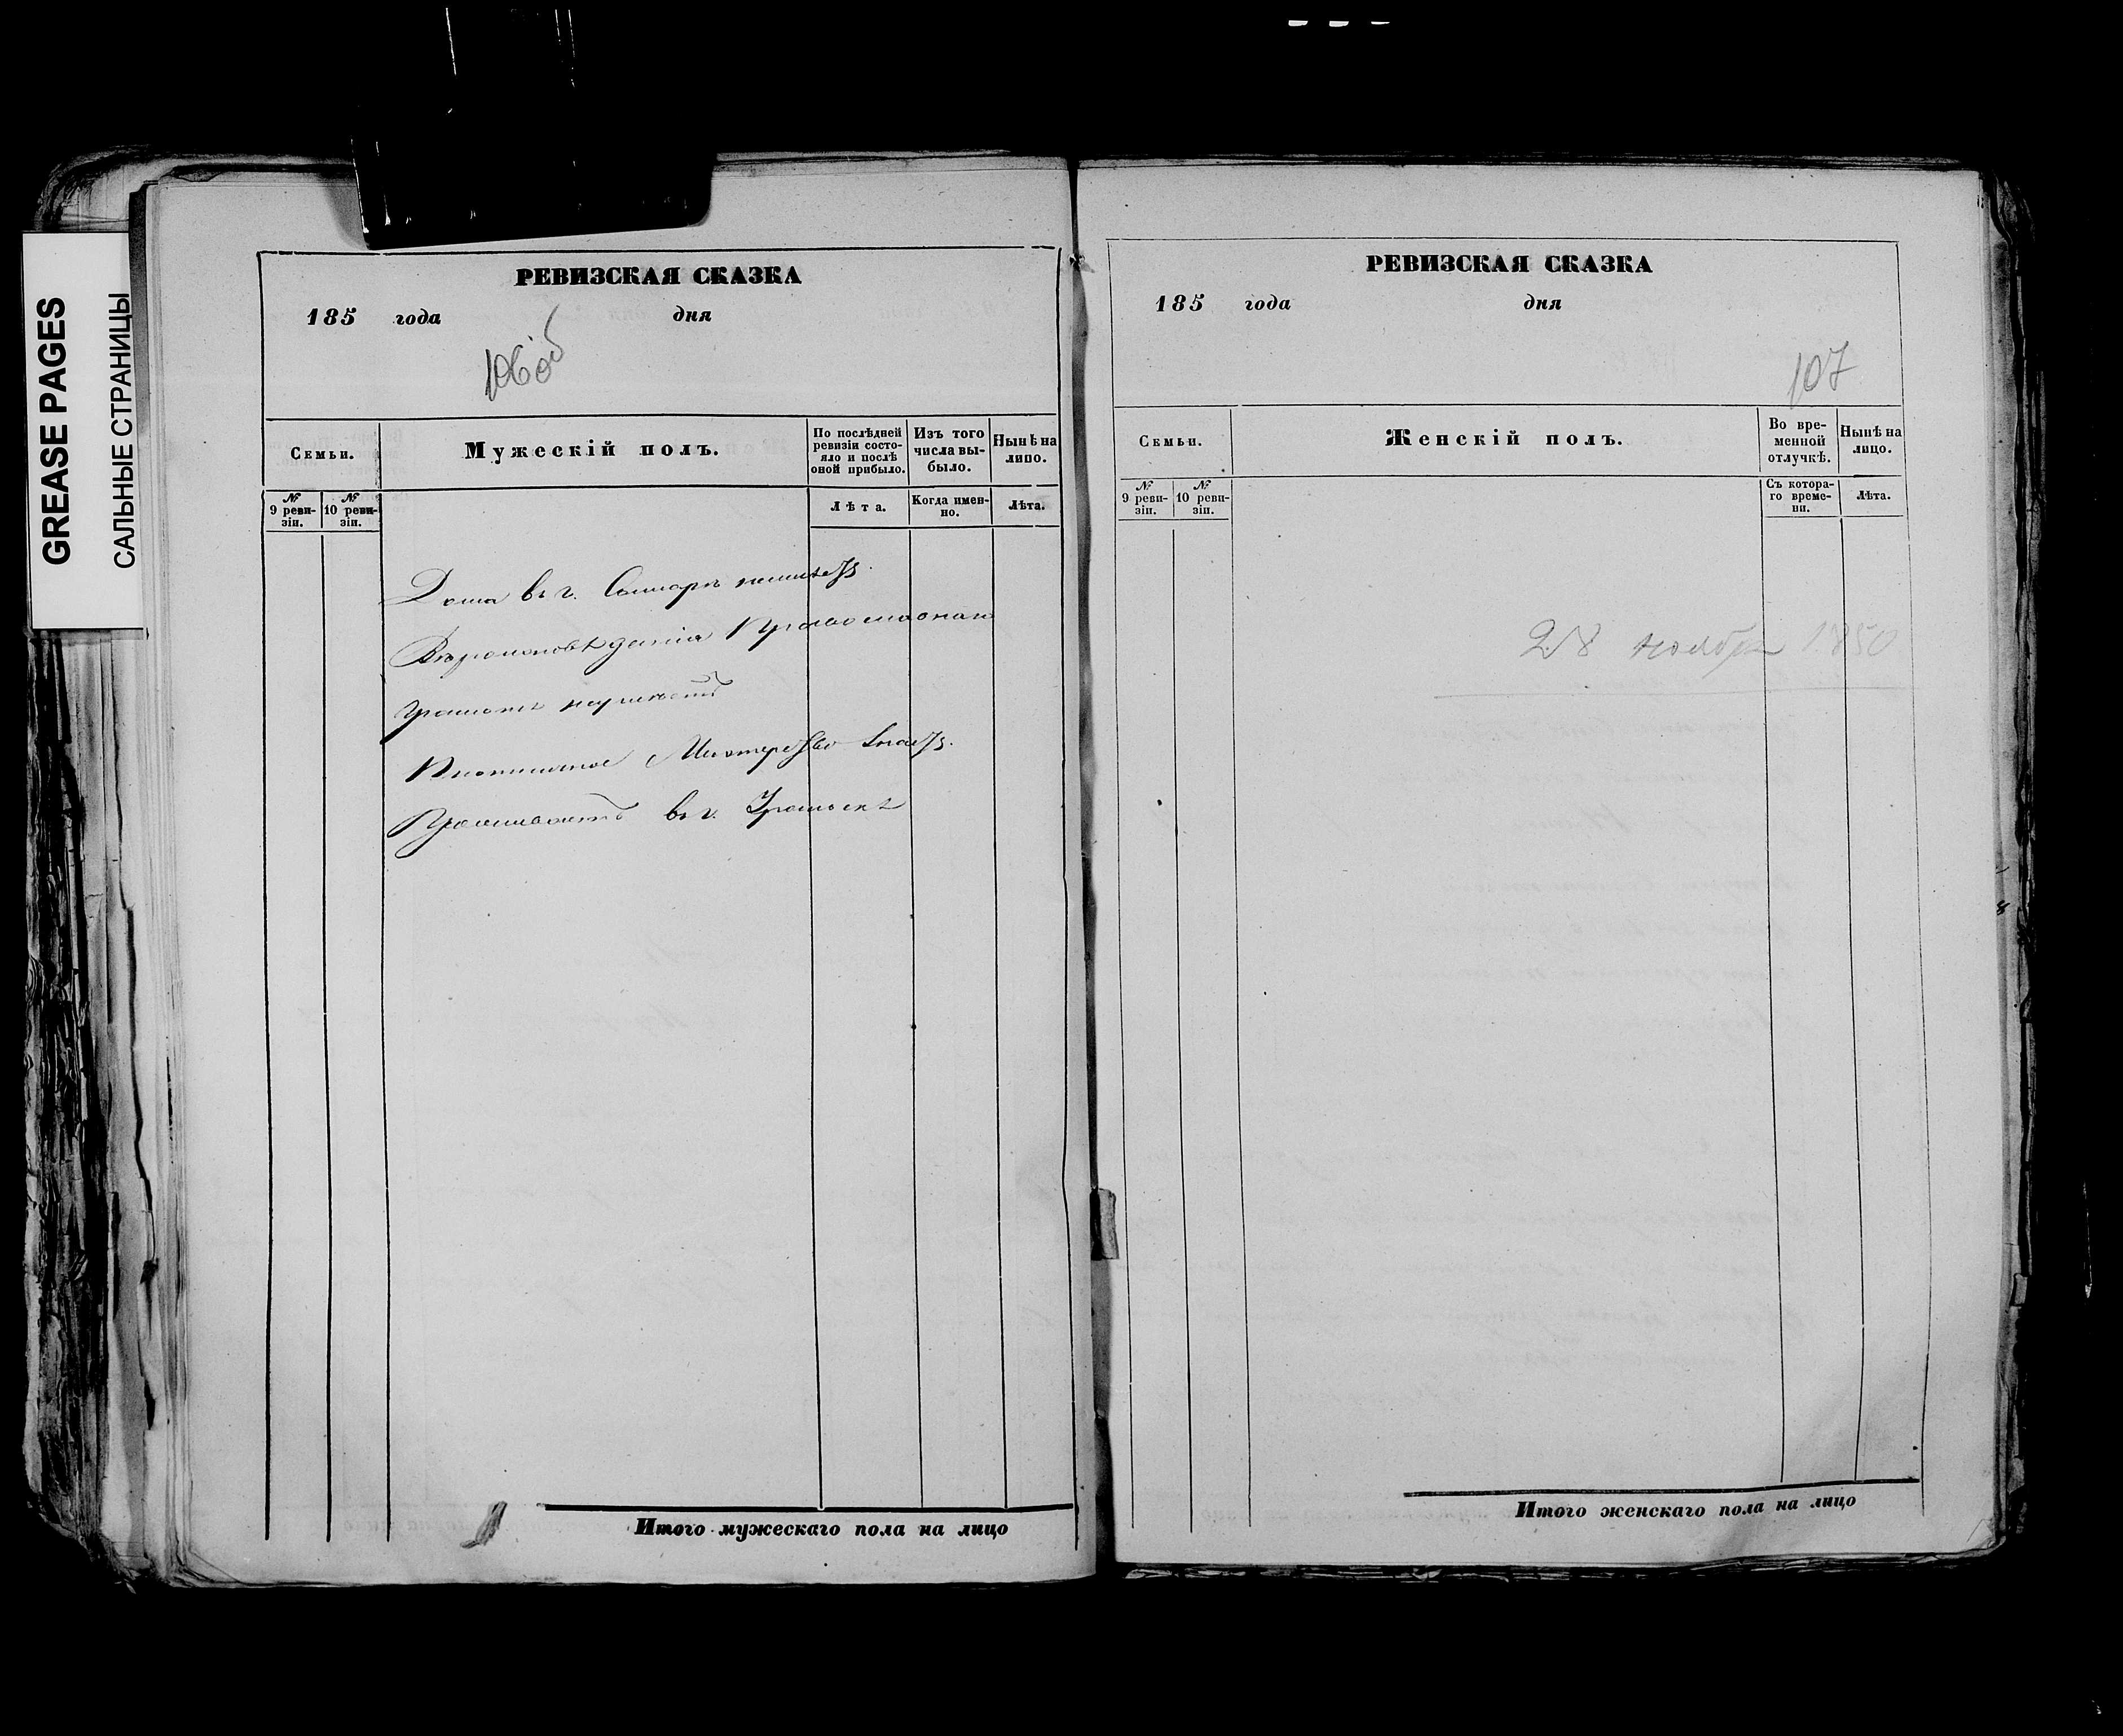 GREASE PAGES
САЛЬНЫЕ СТРАНИЦЫ
РЕВИЗСКАЯ СКАЗКА
185 года дня
106 об
Семьи.
Мужескій полъ.
По послѣдней ревизіи состояло и послѣ оной прибыло.
Изъ того числа выбыло.
Нынѣ на лицо.
№ 9 ревизіи.
№ 10 ревизіи.
Лѣта.
Когда именно.
Лѣта.
Дома въ г. Самарѣ неимѣетъ.
Вѣроисповѣданія Православнаго
Грамотѣ неумѣетъ
Плотничное Мастерство знаетъ.
Проживаетъ въ г.
Итого мужескаго пола на лицо
РЕВИЗСКАЯ СКАЗКА
185 года дня
107
Семьи.
Женскій полъ.
Во временной отлучкѣ.
Нынѣ на лицо.
№ 9 ревизіи.
№ 10 ревизіи.
Съ котораго времени.
Лѣта.
28 ноября 1850
Итого женскаго пола на лицо